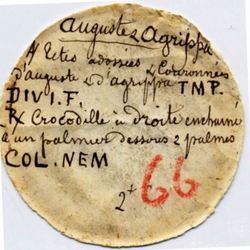 Auguste & Agrippa
A/ Tetes adossées & Couronnées
d'auguste & d'agrippa IMP.
DIVI.F.
R/ Crocodille a droite enchainé
a un palmier dessous 2 palmes
COL.NEM
2+
66